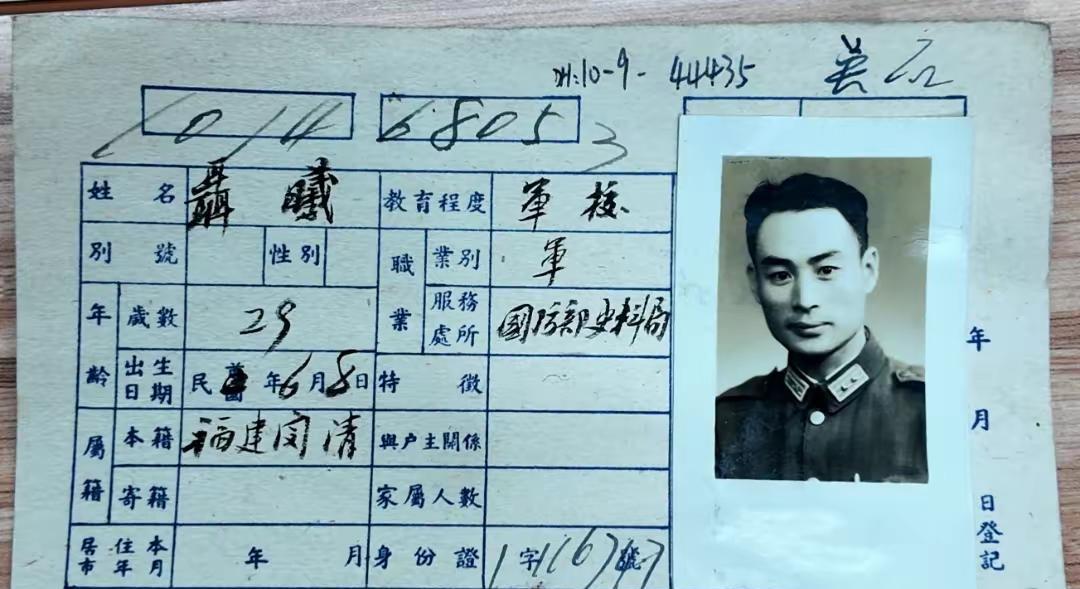 10-9-44435
1014 68053
姓名 聶曦 教育程度 軍校
別號 性別 職業 業別 軍
年齡 歲數 29 服務處所 國防部史料局
出生日期 民 年6月8日 特徵
屬籍 本籍 福建閩清 與戶主關係
寄籍 家屬人數
居住本市年月 年 月 身份證 字 號
年 月 日登記